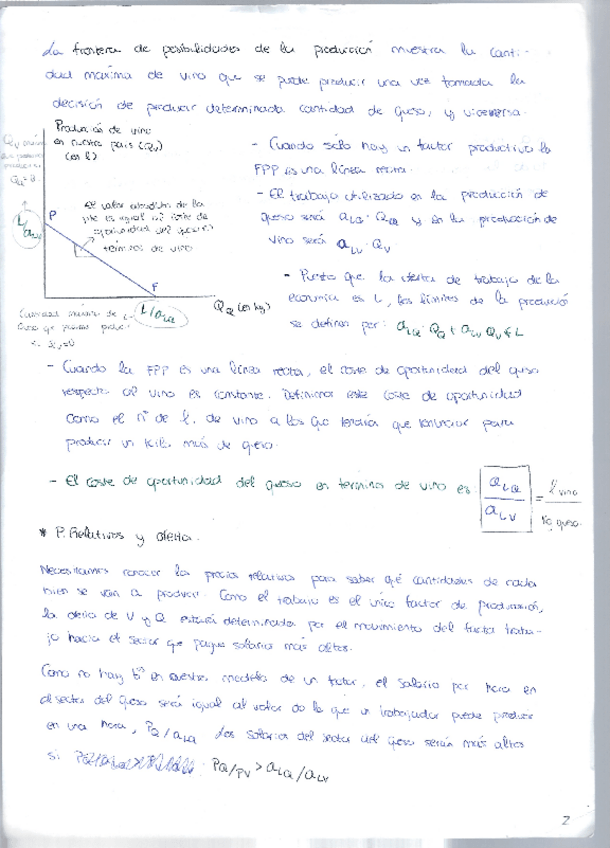 La frontera de posibilidades de la producción muestra la canti-
dad máxima de vino que se puede producir una vez tomada la
decisión de producir determinada cantidad de queso, y viceversa.
Producción de vino
en nuestro país (Qv)
(en l)
- Cuando sólo hay un factor productivo la
FPP es una línea recta.
- El trabajo utilizado en la producción de
queso será aLQ · QQ y en la producción de
vino será aLV · QV
- Puesto que la oferta de trabajo de la
economía es L, los límites de la producción
se definen por: aLQ · QQ + aLV QV ≤ L
El valor absoluto de la
pte es igual al coste de
oportunidad del queso en
términos de vino
L/aLV
P
F
L/aLQ
QQ (en kg)
Cantidad máxima de
queso que puede producir
si QV=0
- Cuando la FPP es una línea recta, el coste de oportunidad del queso
respecto al vino es constante. Definimos este coste de oportunidad
como el nº de l. de vino a los que tendría que renunciar para
producir un kilo más de queso.
- El coste de oportunidad del queso en términos de vino es: aLQ/aLV = l vino/kg queso
* P. Relativos y oferta.
Necesitamos conocer los precios relativos para saber qué cantidades de cada
bien se van a producir. Como el trabajo es el único factor de producción,
la oferta de V y Q estará determinada por el movimiento del factor traba-
jo hacia el sector que pague salarios más altos.
Como no hay bºs en nuestro modelo de un factor, el salario por hora en
el sector del queso será igual al valor de lo que un trabajador puede producir
en una hora, PQ/aLQ Los salarios del sector del queso serán más altos
si PQ/PV > aLQ/aLV
2